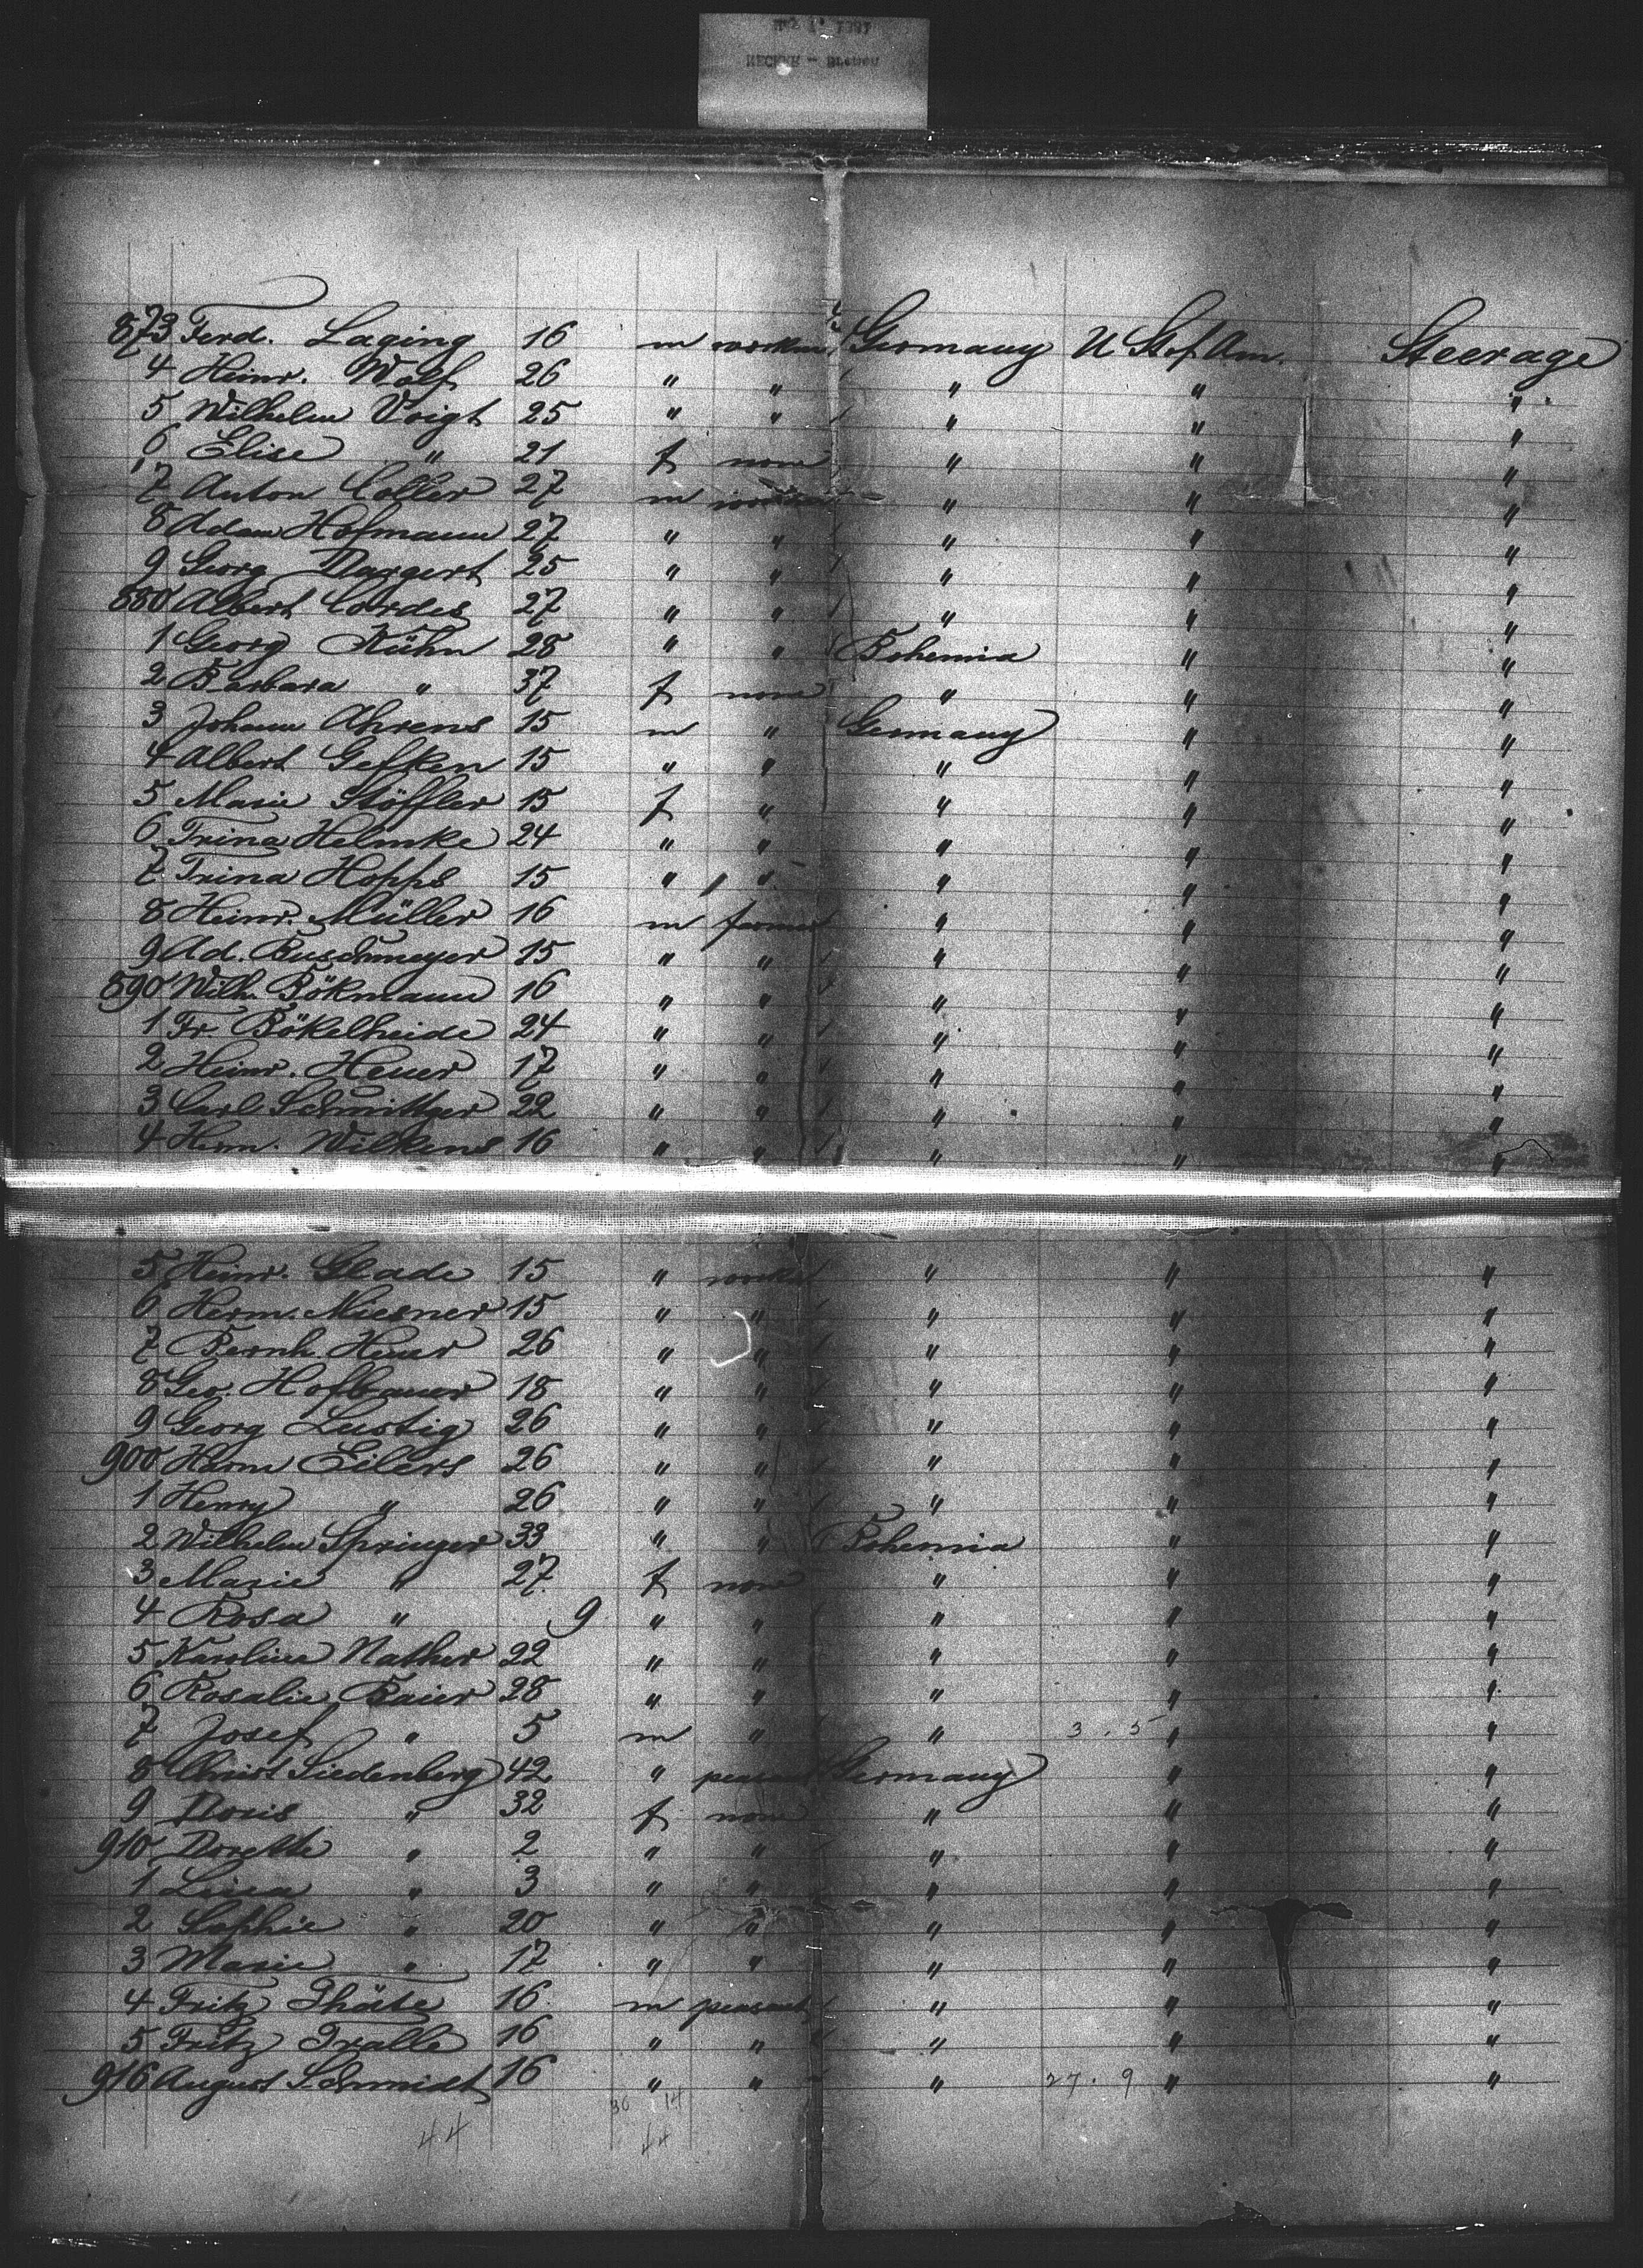 NECKAR - Bremen
873 Ferd. Laging 16 m worker Germany U St of Am. Steerage
4 Heinr. Wolf 26 " " " " "
5 Wilhelm Voigt 25 " " " " "
6 Elise " 21 f none " " "
7 Anton Coller 27 m worker " " "
8 Adam Hofmann 27 " " " " "
9 Georg Dargert 25 " " " " "
880 Albert Cordes 27 " " " " "
1 Georg Kühn 28 " " Bohemia " "
2 Barbara " 37 f none " " "
3 Johann Ahrens 15 m " Germany " "
4 Albert Gefken 15 " " " " "
5 Marie Stöffler 15 f " " " "
6 Trina Helmke 24 " " " " "
7 Trina Hopps 15 " " " " "
8 Heinr. Müller 16 m farmer " " "
9 Ad. Buschmeyer 15 " " " " "
890 Wilh. Bökmann 16 " " " " "
1 Fr. Bökelheide 24 " " " " "
2 Heinr. Heuer 17 " " " " "
3 Carl Schmittger 22 " " " " "
4 Herm. Wilkens 16 " " " " "
5 Heinr. Glade 15 " worker " " "
6 Herm. Miesner 15 " " " " "
7 Bernh. Heuer 26 " " " " "
8 Geo. Hofbauer 18 " " " " "
9 Georg Lustig 26 " " " " "
900 Herm Eilers 26 " " " " "
1 Henry " 26 " " " " "
2 Wilhelm Springer 33 " " Bohemia " "
3 Marie " 27 f none " " "
4 Rosa " 9 " " " " "
5 Karolina Nather 22 " " " " "
6 Rosalie Baier 28 " " " " "
7 Josef " 5 m " " 3.5 " "
8 Christ Siedenberg 42 " peasant Germany " "
9 Doris " 32 f none " " "
910 Dorette " 2 " " " " "
1 Lina " 3 " " " " "
2 Sophie " 20 " " " " "
3 Marie " 17 " " " " "
4 Fritz Thöte 16 m peasant " " "
5 Fritz Tralle 16 " " " " "
916 August Schmidt 16 " " " 27.9 " "
30 14
44 44